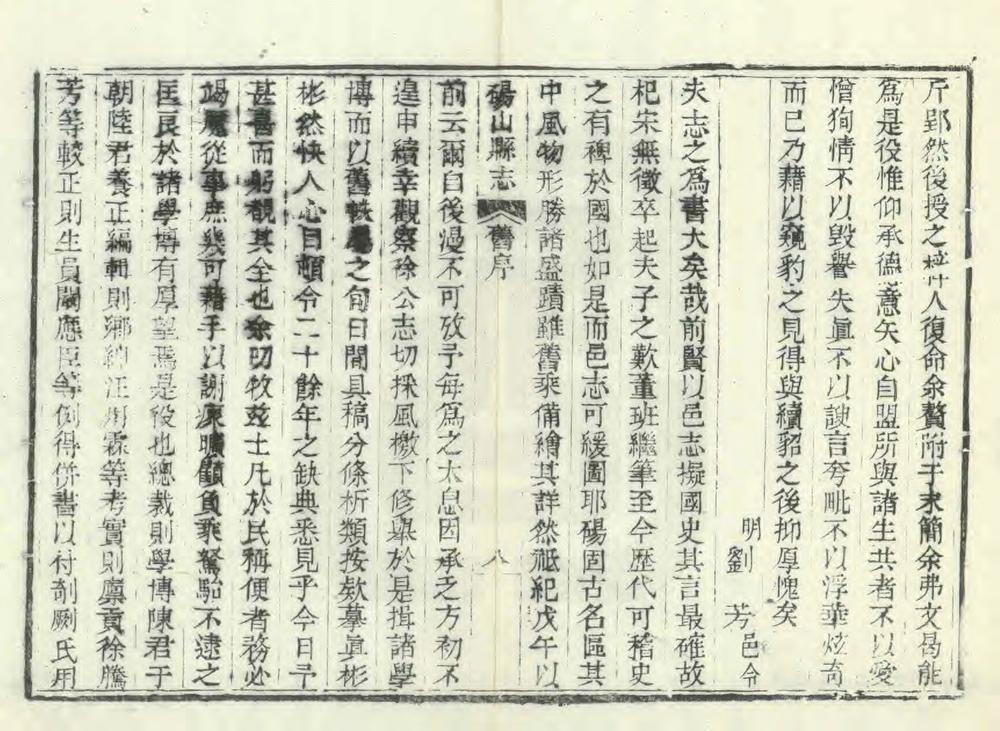 斤郢然後授之梓人復命余贅附于末簡余弗文曷能
為是役惟仰承德意矢心自盟所與諸生共者不以愛
憎狥情不以毀譽失眞不以諛言夸毗不以浮華炫奇
而已乃藉以窺豹之見得與續貂之後抑厚愧矣
明劉芳邑令
夫志之爲書大矣哉前賢以邑志擬國史其言最確故
杞宋無徵卒起夫子之歎董班繼筆至今歷代可稽史
之有裨於國也如是而邑志可緩圖耶碭固古名區其
中風物形勝諸盛蹟雖舊乘備繪其詳然祗紀戊午以
碭山縣志 舊序 八
前云爾自後漫不可攷予每爲之太息因承乏方初不
遑申續幸觀察徐公志切採風檄下修舉於是揖諸學
博而以舊帙屬之旬日間具稿分條析類按欵摹眞彬
彬然快人心目頓令二十餘年之缺典悉見乎今日予
甚喜而躬覩其全也余叨牧茲土凡於民稱便者務必
竭蹷從事庶幾可藉手以謝瘝曠顧負乘駑駘不逮之
匡良於諸學博有厚望焉是役也總裁則學博陳君于
朝陸君養正編輯則鄉紳汪用霖等考實則廩貢徐騰
芳等較正則生員閻應臣等例得併書以付剞劂氏用